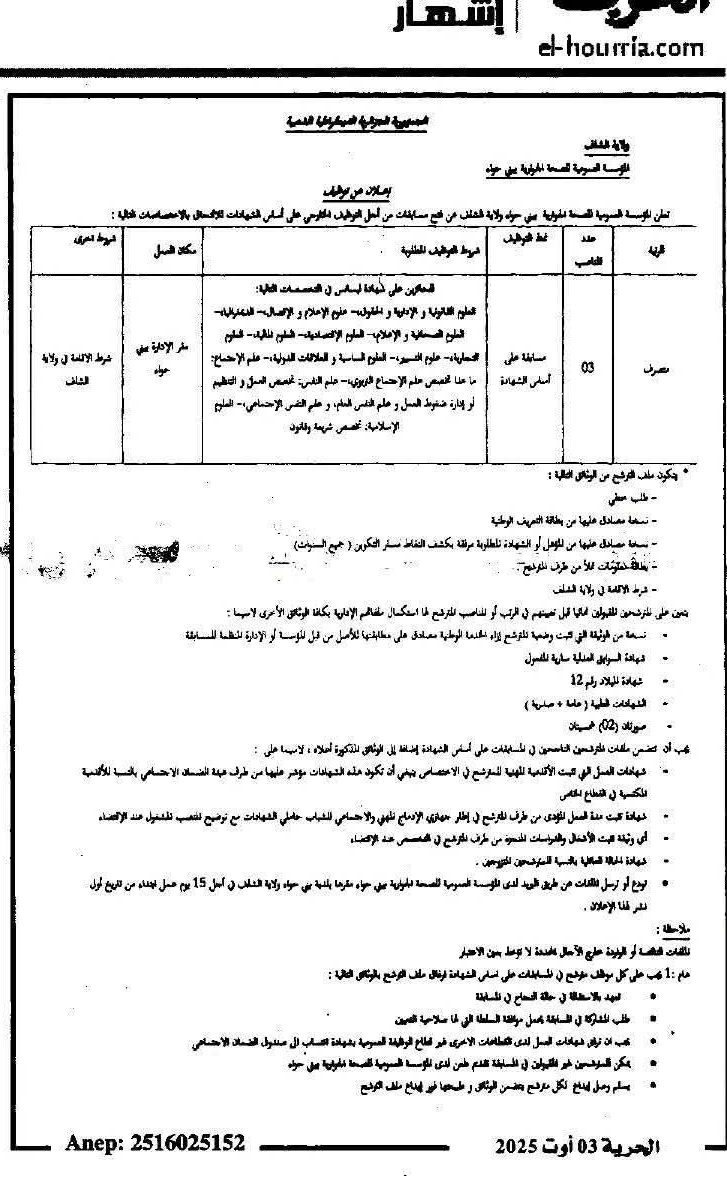 إشهار
el-hourria.com
الجمهورية الجزائرية الديمقراطية الشعبية
ولاية الشلف
المؤسسة العمومية للصحة الجوارية ببني حواء
إعلان عن توظيف
تعلن المؤسسة العمومية للصحة الجوارية ببني حواء ولاية الشلف عن فتح مسابقات من أجل التوظيف الخارجي على أساس الشهادات للالتحاق بالاختصاصات التالية :
الرتبة
عدد المناصب
نمط التوظيف
شروط التوظيف المطلوبة
مكان العمل
شروط أخرى
متصرف
03
مسابقة على
أساس الشهادة
للحائزين على شهادة ليسانس في التخصصات التالية:
العلوم القانونية و الإدارية و الحقوق،- علوم الإعلام و الإتصال،- الديمغرافية،-
العلوم الصحافية و الإعلام،- العلوم الإقتصادية،- العلوم المالية،- العلوم
التجارية،- علوم التسيير،- العلوم السياسية و العلاقات الدولية،- علم الإجتماع:
ما عدا تخصص علم الإجتماع التربوي،- علم النفس: تخصص العمل و التنظيم
أو إدارة ضغوط العمل و علم النفس العام، و علم النفس الإجتماعي،- العلوم
الإسلامية: تخصص شريعة وقانون
مقر الإدارة ببني
حواء
شرط الاقامة في ولاية
الشلف
* يتكون ملف الترشح من الوثائق التالية :
– طلب خطي
– نسخة مصادق عليها من بطاقة التعريف الوطنية
– نسخة مصادق عليها من المؤهل أو الشهادة المطلوبة مرفقة بكشف النقاط مسار التكوين ( جميع السنوات)
– بطاقة معلومات تملأ من طرف المترشح
– شرط الاقامة في ولاية الشلف
يتعين على المترشحين المقبولين نهائيا قبل تعيينهم في الرتب أو المناصب المترشح لها استكمال ملفاتهم الإدارية بكافة الوثائق الأخرى لاسيما :
- نسخة من الوثيقة التي تثبت وضعية المترشح إزاء الخدمة الوطنية مصادق على مطابقتها للأصل من قبل المؤسسة أو الإدارة المنظمة للمسابقة
- شهادة السوابق العدلية سارية المفعول
- شهادة الميلاد رقم 12
- الشهادات الطبية ( عامة + صدرية )
- صورتان (02) شمسيتان
يجب أن تتضمن ملفات المترشحين الناجحين في المسابقات على أساس الشهادة إضافة إلى الوثائق المذكورة أعلاه ، لاسيما على :
- شهادات العمل التي تثبت الأقدمية المهنية للمترشح في الاختصاص ينبغي أن تكون هذه الشهادات مؤشر عليها من طرف هيئة الضمان الاجتماعي بالنسبة للأقدمية
المكتسبة في القطاع الخاص
- شهادة تثبت مدة العمل المؤدى من طرف المترشح في إطار جهازي الإدماج المهني والاجتماعي للشباب حاملي الشهادات مع توضيح المنصب المشغول عند الإقتضاء
- أي وثيقة تثبت الأشغال والدراسات المنجزة من طرف المترشح في التخصص عند الإقتضاء
- شهادة الحالة العائلية بالنسبة للمترشحين المتزوجين .
• تودع أو ترسل الملفات عن طريق البريد لدى المؤسسة العمومية للصحة الجوارية ببني حواء مقرها بلدية بني حواء ولاية الشلف في أجل 15 يوم عمل ابتداء من تاريخ أول
نشر لهذا الإعلان .
ملاحظة :
الملفات الناقصة أو الواردة خارج الآجال المحددة لا تؤخذ بعين الاعتبار
هام :1 يجب على كل موظف مترشح في المسابقات على اساس الشهادة ارفاق ملف الترشح بالوثائق التالية :
• تعهد بالاستقالة في حالة النجاح في المسابقة
• طلب المشاركة في المسابقة يحمل موافقة السلطة التي لها صلاحية التعيين
• يجب ان ترفق شهادات العمل لدى القطاعات الاخرى غير قطاع الوظيفة العمومية بشهادة انتساب الى صندوق الضمان الاجتماعي
• يمكن للمترشحين غير المقبولين في المسابقة تقديم طعن لدى المؤسسة العمومية للصحة الجوارية ببني حواء
• يسلم وصل إيداع لكل مترشح يتضمن الوثائق و طبيعتها فور إيداع ملف الترشح
الحرية 03 أوت 2025
Anep: 2516025152